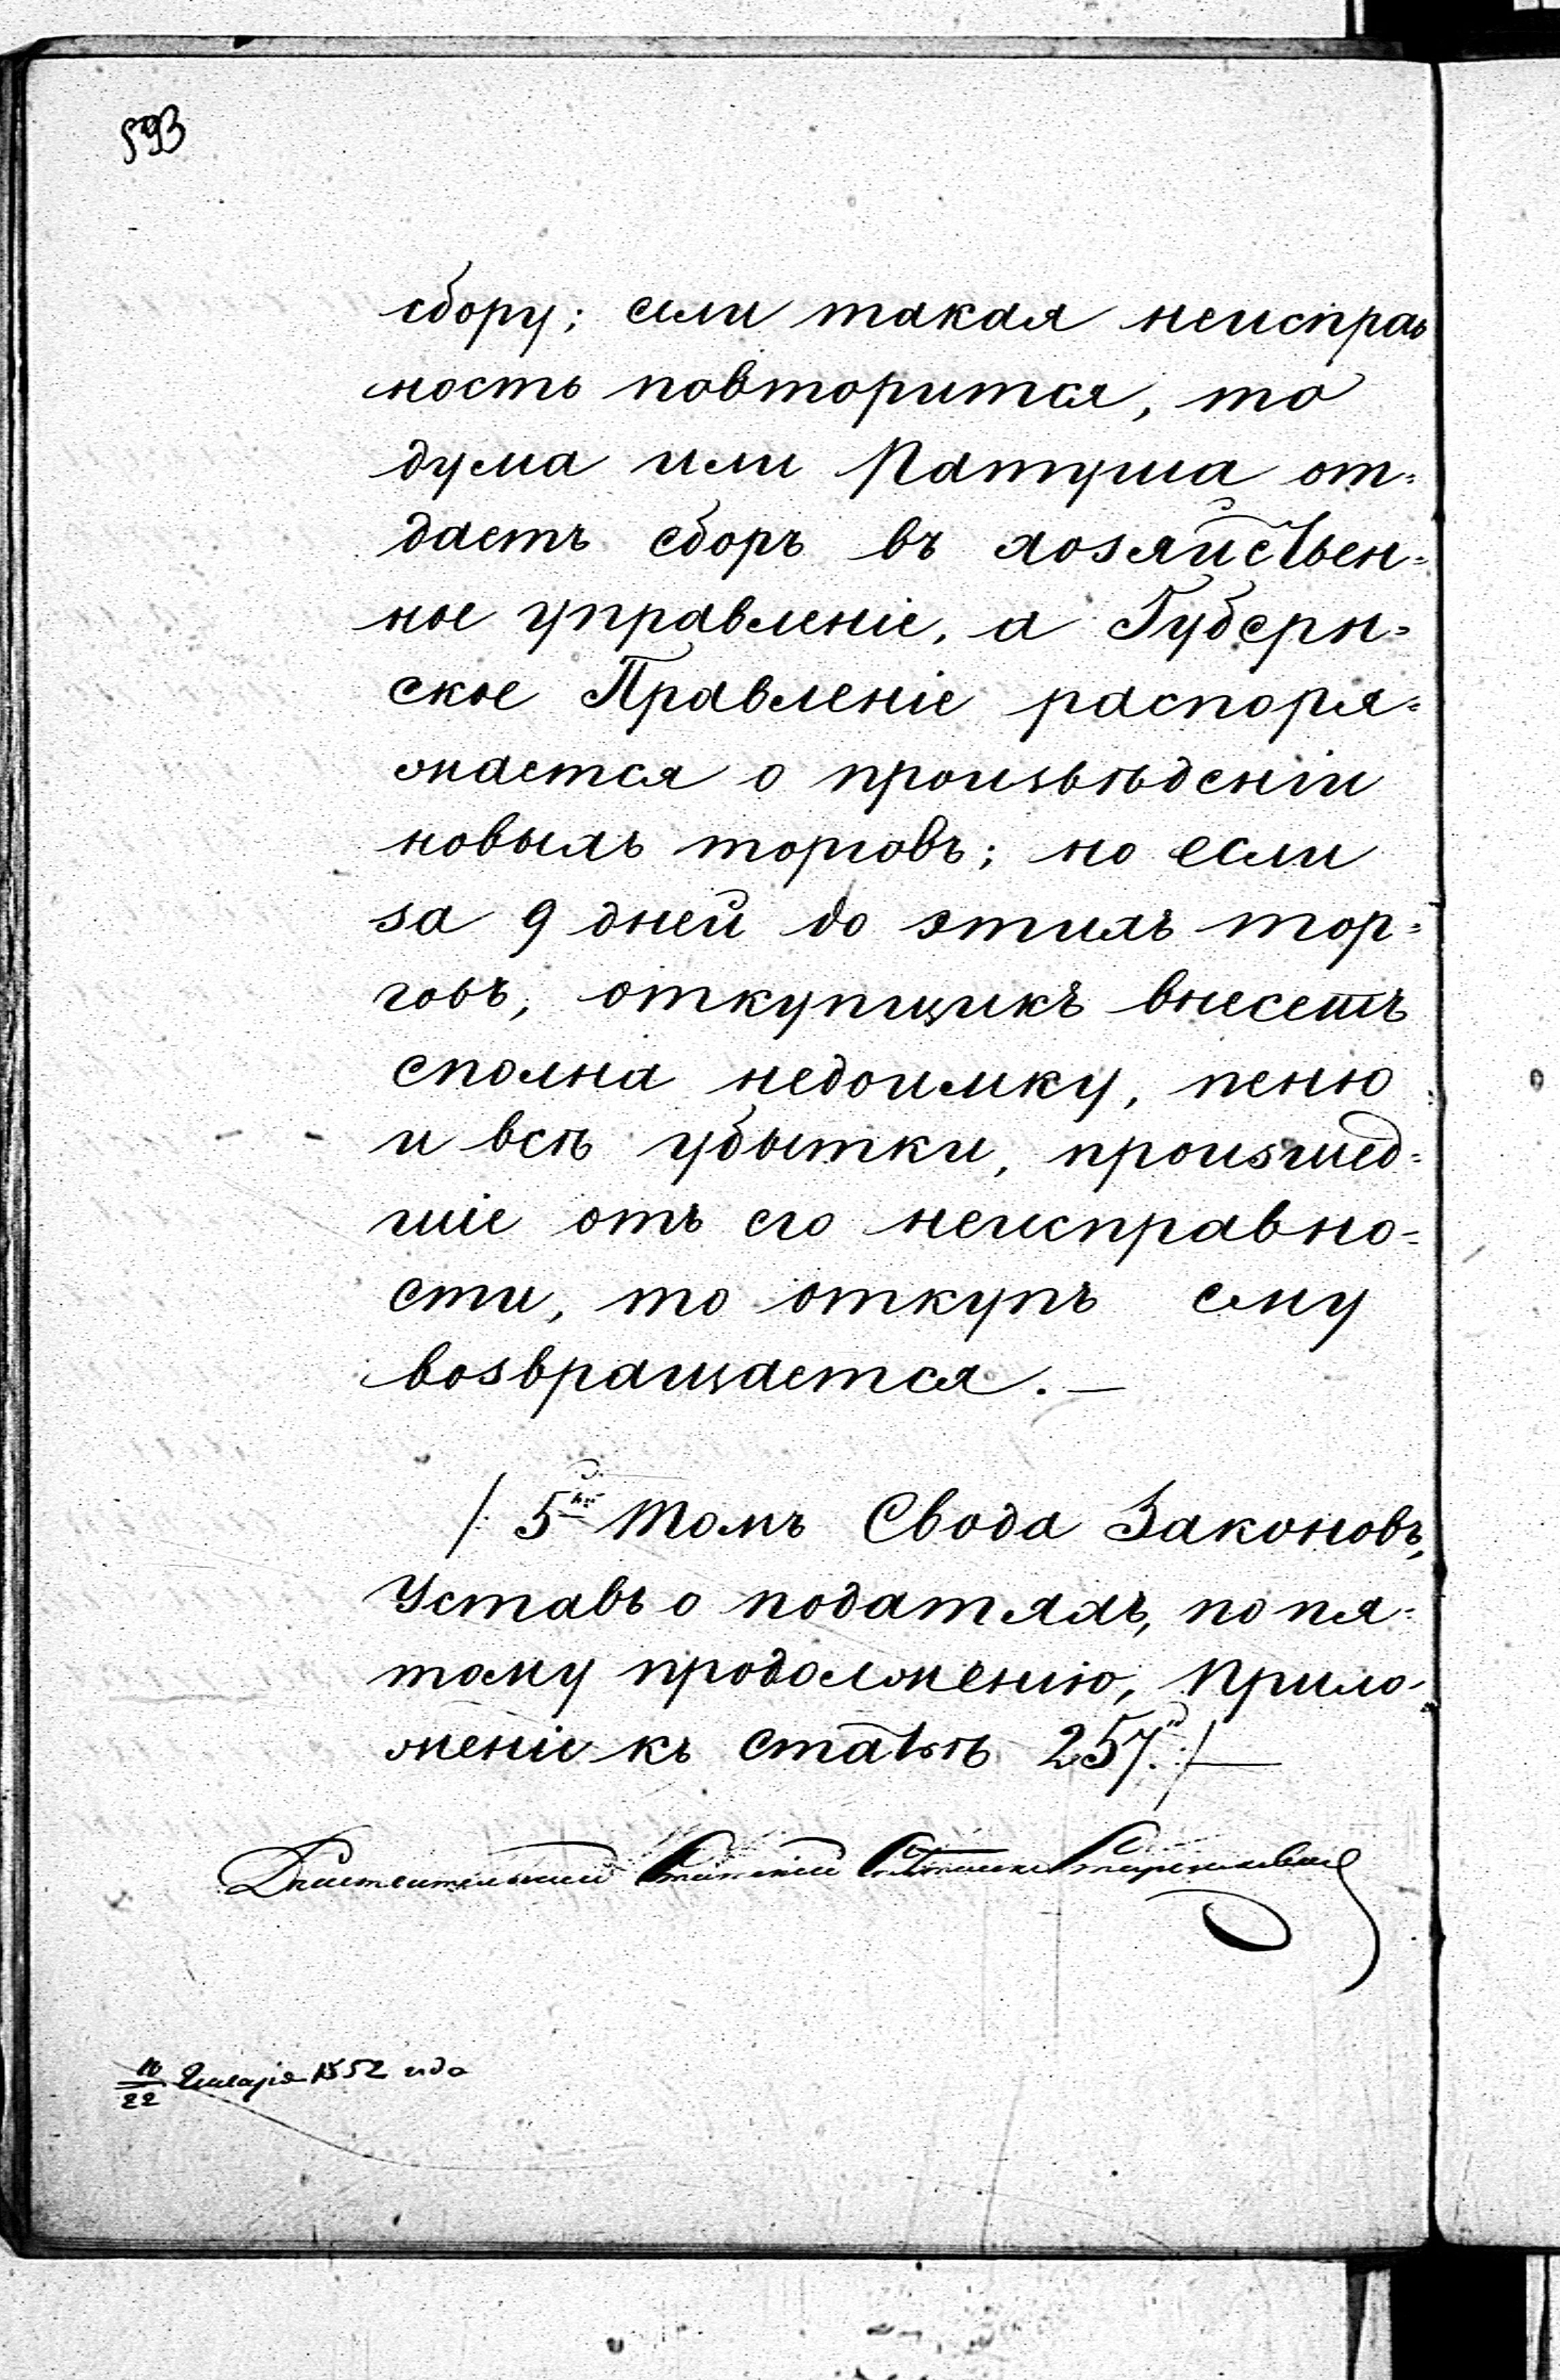 593
сбору; если такая неисправ
ность повторится, то
дума или Ратуша от=
даетъ сборъ въ хозяйствен=
ное управленіе, а Губерн=
ское Правленіе распоря=
жается о произвѣденіи
новыхъ торговъ; но если
за 9 дней до этихъ тор=
говъ, откупщикъ внесетъ
сполна недоимку, пеню
и всѣ убытки, происшед=
шіе отъ его неисправно=
сти, то откупъ ему
возвращается. —
/: 5ый Томъ Свода Законовъ,
Уставъ о податяхъ, по пя=
тому продолженію, прило-
женіе къ статьѣ 257. :/ —
Дѣйствительный Статскій Совѣтникъ
10/22 Января 1852 года